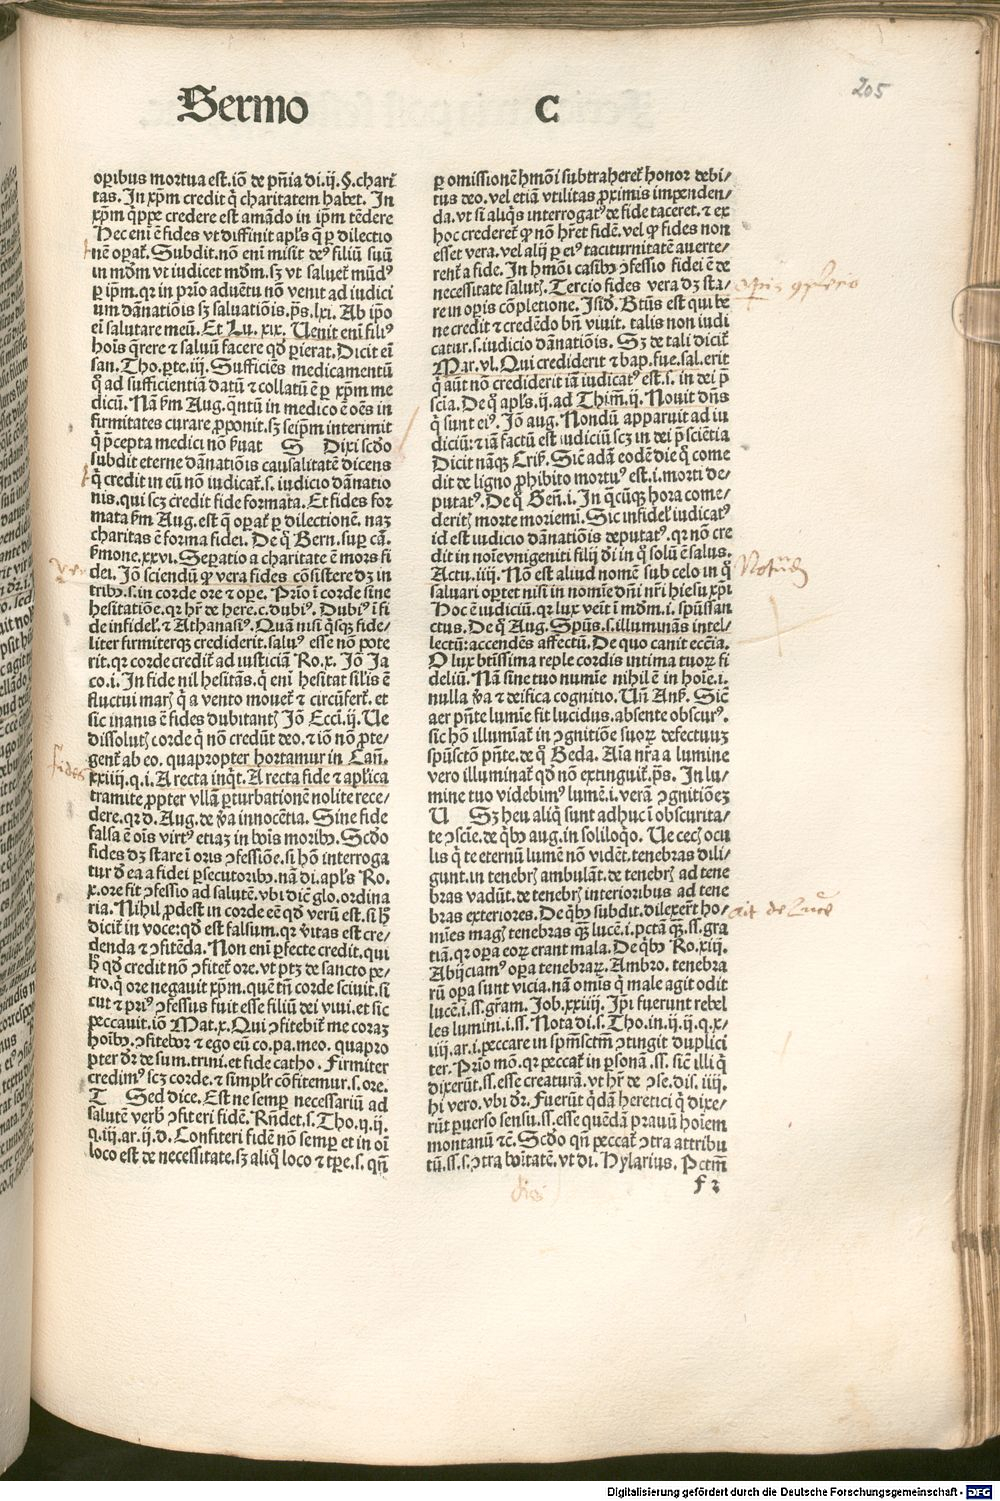 205
Sermo C
operibus mortua est. iō de pn̄ia di. ij. §. charit
tas. In xp̄m credit q̇ charitatem habet. In
xp̄m q̇ppe credere est amādo in ip̄m tēdere
Hec eni ē fides vt diffinit apl̄s q̄ ꝑ dilectio
nē opat᷑. Subdit. nō enī misit deꝰ filiū suū
in mūdm̄ vt iudicet mūdm̄. sꝫ vt saluet᷑ mūdꝰ
ꝑ ip̄m. qꝛ in prīo aduētu nō venit ad iudici
um dānatiōis sꝫ saluatiōis. p̄s. lxi. Ab ip̄o
ei salutare meū. Et Lu. xix. Uenit enī filiꝰ
hoīs q̄rere ⁊ saluū facere qd̄ ꝑierat. Dicit eī
san. Tho. ꝑte. iij. Sufficiēs medicamentū
q̄ ad sufficientiā datū ⁊ collatū ē ꝑ xp̄m me
dicū. Nā ẜm Aug. q̄ntū in medico ē oēs in
firmitates curare ꝓponit. sꝫ seip̄m interimit
q̇ p̄cepta medici nō ẜuat S Dixi scd̄o
subdit eterne dānatiōis causalitatē dicens
q̇ credit in eū nō iudicat᷑. s. iudicio dānatio
nis. qui scꝫ credit fide formata. Et fides for
mata ẜm Aug. est q̄ opat᷑ ꝑ dilectionē. naꝫ
charitas ē forma fidei. De q̇ Bern. suꝑ cā.
ẜmone. xxvi. Seꝑatio a charitate ē mors fi
dei. Jō sciendū ꝙ vera fides cōsistere dꝫ in
tribꝰ. s. in corde ore ⁊ ope. Prīo ī corde sine
hesitatiōe. qꝛ hr̄ de here. c. dubiꝰ. Dubiꝰ ī fi
de infidel᷑. ⁊ Athanasiꝰ. Quā nisi q̇sqꝫ fide⸗
liter firmiterqꝫ crediderit. saluꝰ esse nō pote
rit. qꝛ corde credit᷑ ad iusticiā Ro. x. Jō Ja
co. i. In fide nil hesitās. q̇ enī hesitat silis ē
fluctui marꝭ q̇ a vento mouet᷑ ⁊ circūfert᷑. et
sic inanis ē fides dubitantꝭ Jō Eccī. ij. Ue
dissolutꝭ corde q̇ nō credūt deo. ⁊ iō nō ꝓte⸗
gent᷑ ab eo. quapropter hortamur in Can̄.
xxiiij. q. i. A recta inq̇t. A recta fide ⁊ apl̄ica
tramite ꝓpter vllā ꝑturbationē nolite rece⸗
dere. qꝛ d. Aug. de v̄a innocētia. Sine fide
falsa ē oīs virtꝰ etiaꝫ in boīs moribꝰ. Scd̄o
fides dꝫ stare ī oris ꝯfessiōe. si hō interroga
tur d̄ ea a fidei ꝑsecutoribꝰ. nā di. apl̄s Ro.
x. ore fit ꝯfessio ad salutē. vbi dic̄ glo. ordina
ria. Nihil ꝓdest in corde eē qd̄ verū est. si h̄
dicit᷑ in voce: qd̄ est falsum. qꝛ v̄itas est cre⸗
denda ⁊ ꝯfitēda. Non enī ꝑfecte credit. qui
h̄ qd̄ credit nō ꝯfitet᷑ ore. vt ptꝫ de sancto pe⸗
tro. q̇ ore negauit xp̄m. quē tn̄ corde sciuit. si
cut ⁊ priꝰ ꝯfessus fuit esse filiū dei viui. et sic
peccauit. iō Mat. x. Qui ꝯfitebit᷑ me coraꝫ
hoībꝰ. ꝯfitebor ⁊ ego eū co. pa. meo. quapro
pter dr̄ de sum. trini. et fide catho. Firmiter
credimꝰ scꝫ corde. ⁊ simpl̄r cōfitemur. s. ore.
T Sed dice. Est ne semꝑ necessariū ad
salutē verbꝭ ꝯfiteri fidē. Rn̄det. s. Tho. ij. ij.
q. iij. ar. ij. d. Confiteri fidē nō semꝑ et in oī
loco est de necessitate. sꝫ aliq̊ loco ⁊ tꝑe. s. qn̄
ꝑ omissionē hm̄oi subtraheret᷑ honor debi⸗
tus deo. vel etiā vtilitas ꝓximis impenden⸗
da. vt si aliq̇s interrogatꝰ de fide taceret. ⁊ ex
hoc crederet᷑ ꝙ nō hr̄et fidē. vel ꝙ fides non
esset vera. vel alij ꝑ eiꝰ taciturnitatē auerte⸗
rent᷑ a fide. In hm̄oi casibꝰ ꝯfessio fidei ē de
necessitate salutꝭ. Tercio fides vera dꝫ sta⸗
re in opis cōpletione. Isid. Bt̄us est qui be
ne credit ⁊ credēdo bn̄ viuit. talis non iudi
catur. s. iudicio dānatiōis. Sꝫ de tali dicit᷑
Mar. vl. Qui crediderit ⁊ bap. fue. sal. erit
q̇ aūt nō crediderit iā iudicatꝰ est. s. in dei p̄
scīa. De q̊ apl̄s. ij. ad Thim̄. ij. Nouit dn̄s
q̇ sunt eiꝰ. Jō aug. Nondū apparuit ad iu
diciū: ⁊ iā factū est iudiciū scꝫ in dei p̄sciētia
Dicit nāqꝫ Criß. Sic̄ adā eodē die q̊ come
dit de ligno ꝓhibito mortuꝰ est. i. morti de⸗
putatꝰ. De q̊ Gen̄. i. In q̄cūqꝫ hora come⸗
deritꝭ morte moriemi. Sic infidel᷑ iudicatꝰ
id est iudicio dānatiōis deputatꝰ. qꝛ nō cre
dit in noīe vnigeniti filij dī in q̊ solū ē salus.
Actu. iiij. Nō est aliud nomē sub celo in q̊
saluari oꝑtet nisi in nomīe dn̄i nr̄i hiesu xp̄i
Hoc ē iudiciū. qꝛ lux venīt ī mūdm̄. i. spūssan
ctus. De q̊ Aug. Spūs. s. illuminās intel⸗
lectū: accendēs affectū. De quo canit eccīa.
O lux bt̄issima reple cordis intima tuoꝝ fi
deliū. Nā sine tuo numīe nihil ē in hoīe. i.
nulla v̄a ⁊ deifica cognitio. Un̄ Anß. Sic̄
aer pn̄te lumīe fit lucidus. absente obscurꝰ.
sic hō illumīat᷑ in ꝯgnitiōe suoꝝ defectuuꝫ
spūsctō pn̄te. de q̊ Beda. Aīa nr̄a a lumine
vero illuminat᷑ qd̄ nō extinguit᷑. p̄s. In lu⸗
mine tuo videbimꝰ lumē. i. verā ꝯgnitiōeꝫ
U Sꝫ heu aliq̇ sunt adhuc ī obscurita⸗
te ꝯscīe. de q̇bꝰ aug. in soliloq̇o. Ue cecꝭ ocu
lis q̇ te eternū lumē nō vidēt. tenebras dili⸗
gunt. in tenebrꝭ ambulāt. de tenebrꝭ ad tene
bras vadūt. de tenebrꝭ interioribus ad tene
bras exteriores. De q̇bꝰ subdit. dilexer̄t ho⸗
mīes magꝭ tenebras qꝫ lucē. i. pctā qꝫ. ss. gra
tiā. qꝛ opa eoꝝ erant mala. De q̇bꝰ Ro. xiij.
Abijciamꝰ opa tenebraꝝ. Ambro. tenebra
rū opa sunt vicia. nā omis q̇ male agit odit
lucē. i. ss. gr̄am. Job. xxiiij. Ip̄i fuerunt rebel
les lumini. i. ss. Nota di. s. Tho. in. ij. ij. q. x⸗
iiij. ar. i. peccare in spm̄sctm̄ ꝯtingit duplici
ter. Prīo mō. qꝛ peccat᷑ in ꝑsonā. ss. sic̄ illi q̇
dixerūt. ss. esse creaturā. vt hr̄ de ꝯse. dis. iiij.
hi vero. vbi dr̄. Fuerūt q̇dā heretici q̇ dixe⸗
rūt ꝑuerso sensu. ss. esse quēdā prauū hoīem
montanū ⁊c̄. Scd̄o qn̄ peccat᷑ ꝯtra attribu
tū. ss. s. ꝯtra boītatē. vt di. Hylarius. Pctm̄
f 2
opis ꝯpletio
ver
fides
ait de Luce